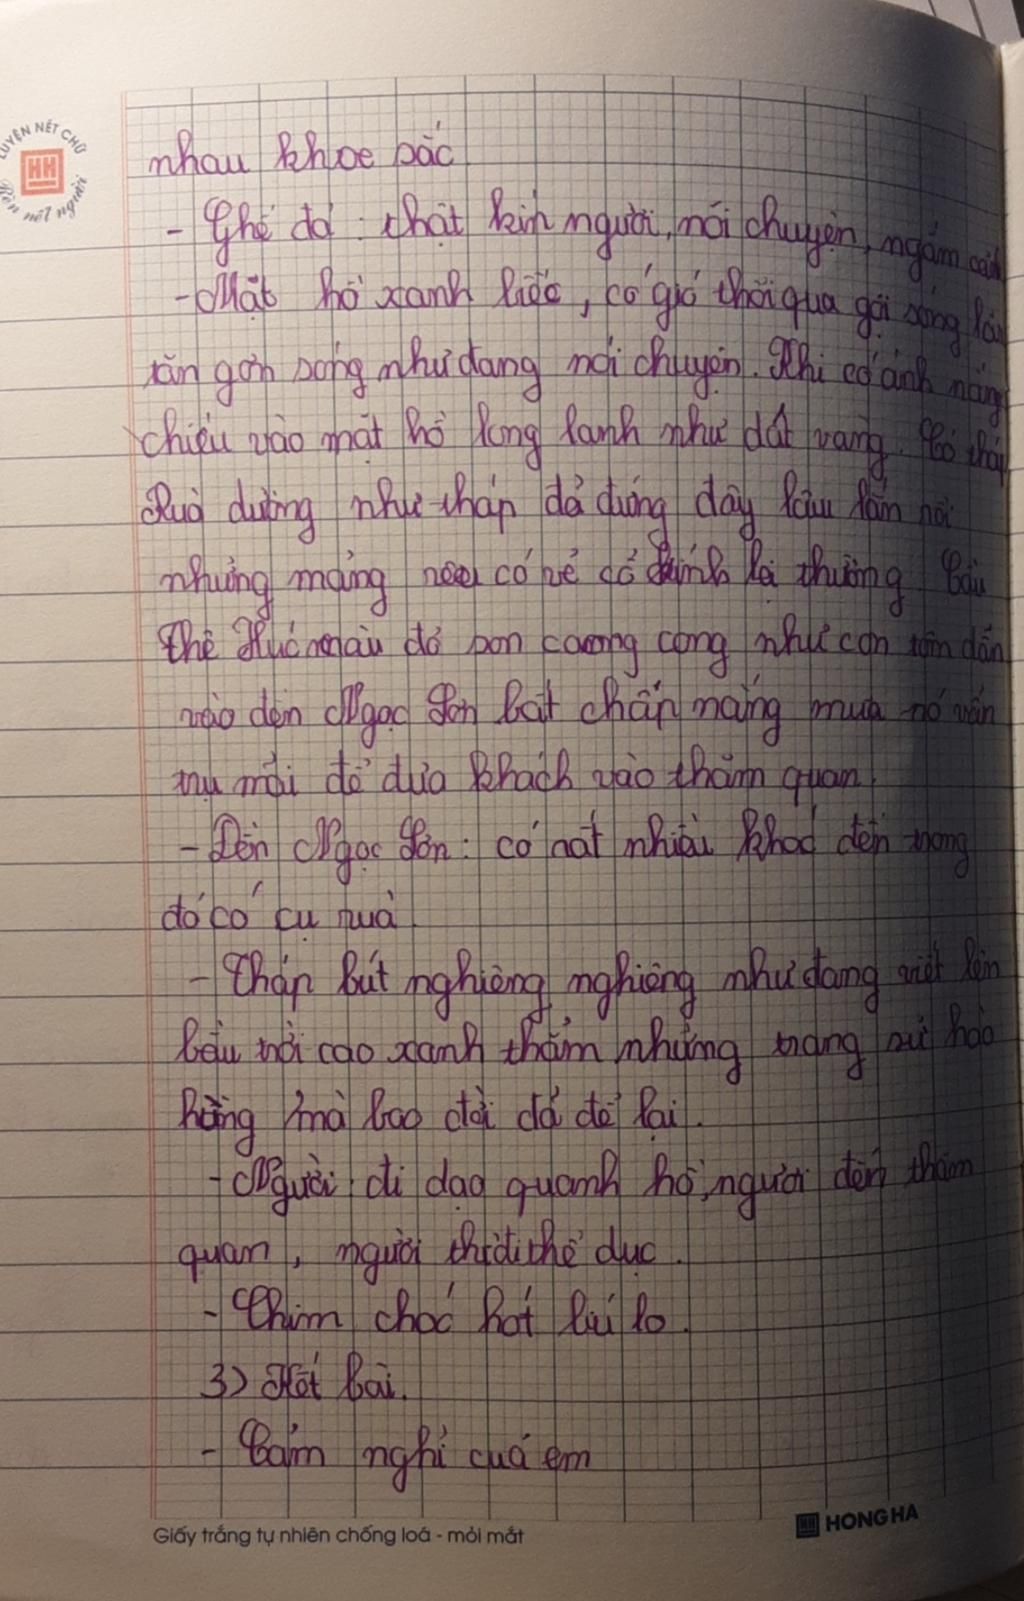 LUYỆN NÉT CHỮ
HH
Rèn nết người
nhau khoe sắc
- Ghế đá : chật kín người, nói chuyện, ngắm cảnh
- Mặt hồ xanh biếc, có gió thổi qua gợi sóng lăn
tăn gơn sóng như đang nói chuyện. Khi có ánh nắng
chiếu vào mặt hồ long lanh như dát vàng. Có tháp
Rùa dường như tháp đã đứng đây lâu lắm rồi
những mảng có vẻ cổ kính lạ thường Cầu
Thê Húc màu đỏ son cong như con tôm dẫn
vào đền Ngọc Sơn bất chấp nắng mưa nó vẫn
trụ mãi để đưa khách vào thăm quan.
- Đền Ngọc Sơn : có rất nhiều khác đến trong
đó có cụ rùa.
- Tháp bút nghiêng nghiêng như đang viết lên
bầu trời cao xanh thẳm những trang sử hào
hùng mà bao đời đã để lại.
- Người đi dạo quanh hồ, người đến thăm
quan, người thì đi thể dục.
- Chim chóc hót líu lo.
3) Kết bài.
- Cảm nghĩ của em
Giấy trắng tự nhiên chống loá - mỏi mắt
HONG HA